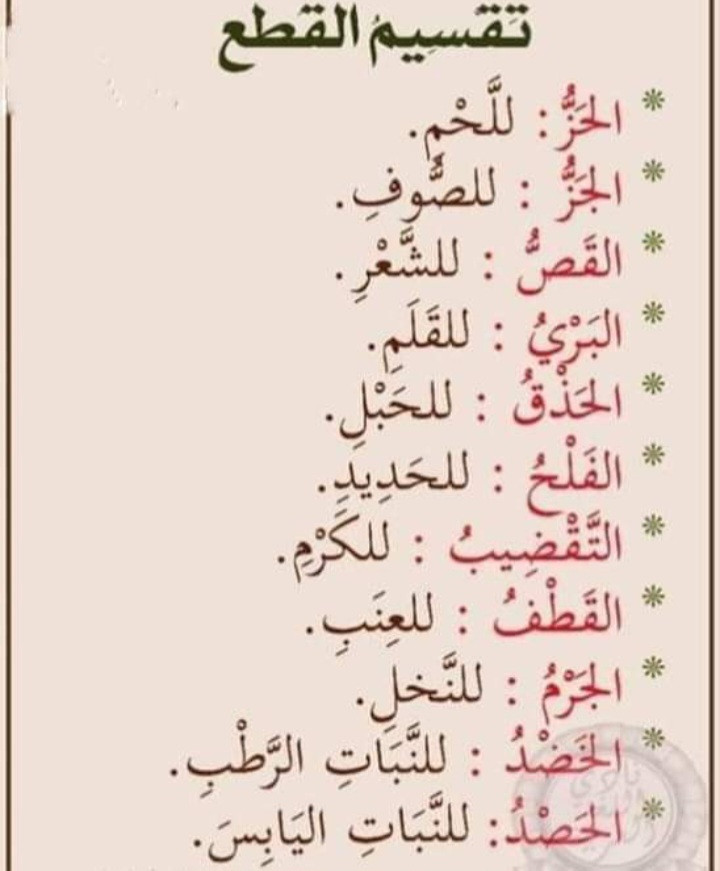 تَقْسِيمُ القَطع
* الحَزُّ: للَّحْمِ.
* الجَزُّ : للصُّوفِ.
* القَصُّ : للشَّعْرِ.
* البَرْيُ : للقَلَمِ.
* الحَذْقُ : للحَبْلِ.
* الفَلْحُ : للحَدِيدِ.
* التَّقْضِيبُ : للكَرْمِ.
* القَطْفُ : للعِنَبِ.
* الجَرْمُ : للنَّخلِ.
* الخَضْدُ : للنَّبَاتِ الرَّطْبِ.
* الحَصْدُ: للنَّبَاتِ اليَابِسَ.